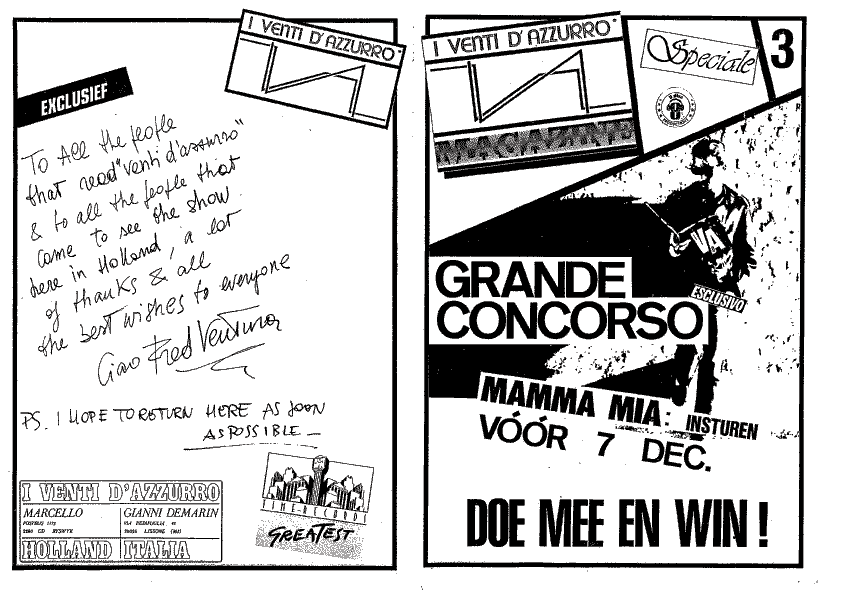 I VENTI D'AZZURRO
EXCLUSIEF
To All the people
that read "venti d'azzurro"
& to all the people that
came to see the show
here in Holland, a lot
of thanks & all
the best wishes to everyone
Ciao Fred Ventura
PS. I HOPE TO RETURN HERE AS SOON
AS POSSIBLE
I VENTI D'AZZURRO
MARCELLO
POSTBUS 1172
2280 CD RYSWYK
HOLLAND
GIANNI DEMARIN
VIA
LISSONE (MI)
ITALIA
TIME RECORDS
GREATEST
I VENTI D'AZZURRO
MAGAZINE
Speciale
3
VA
GRANDE
CONCORSO
ESCLUSIVO
MAMMA MIA: INSTUREN
VÓÓR 7 DEC.
DOE MEE EN WIN!